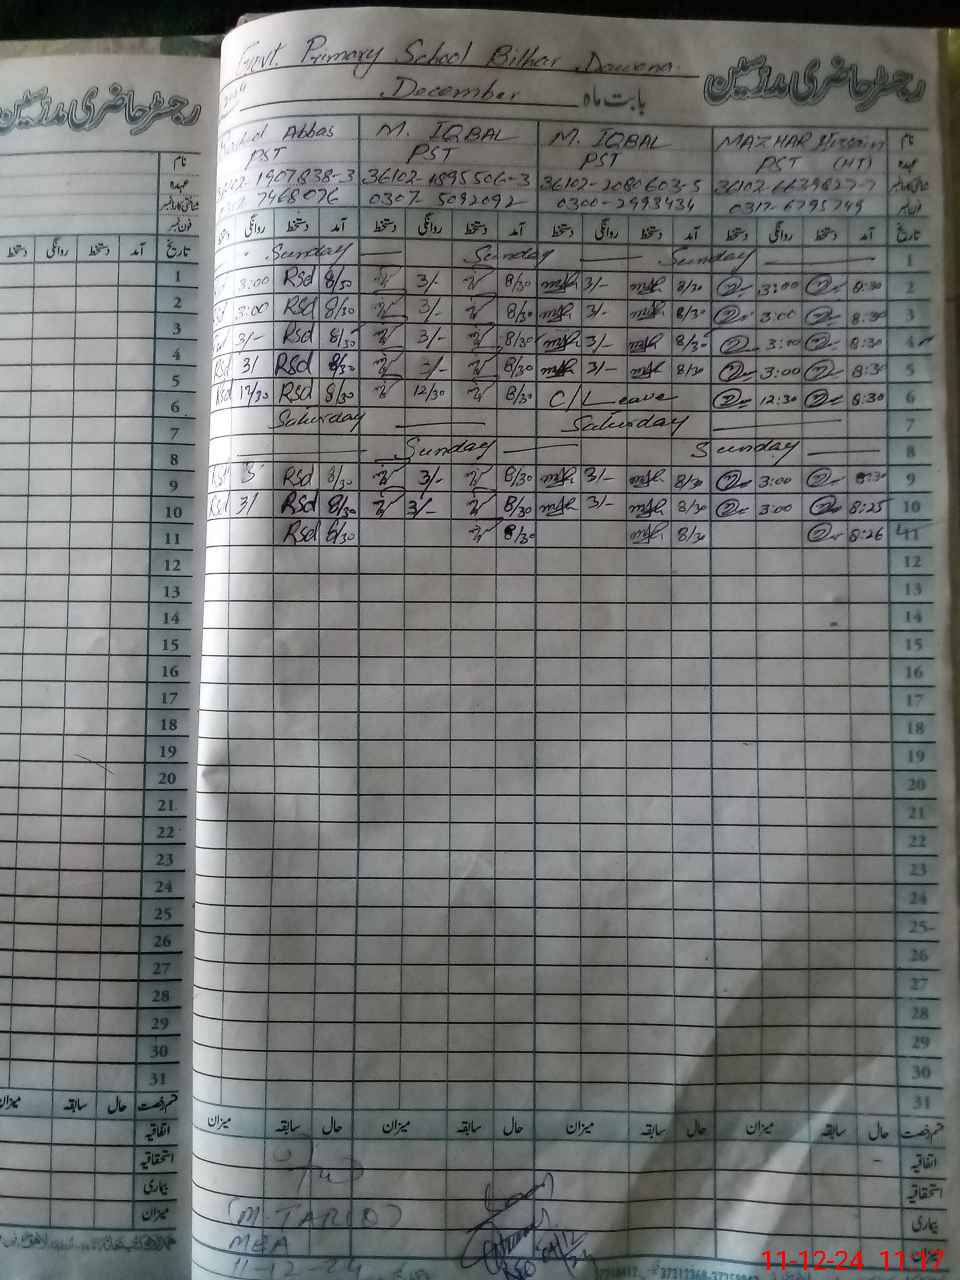 Govt. Primary School Bilhar Dawana
رجسٹر حاضری مدرسین
2024 December بابت ماہ
رجسٹر حاضری مدرسین
Abbas M. IQBAL M. IQBAL MAZHAR Hussain نام
PST PST PST PST (HT) عہدہ
36102-1907838-3 36102-1895506-3 36102-2080603-5 36102-6639827-7
7468076 0307-5092092 0300-2993434 0317-6795749 فون نمبر
دستخط روانگی دستخط آمد دستخط روانگی دستخط آمد دستخط روانگی دستخط آمد دستخط روانگی دستخط آمد تاریخ
Sunday Sunday Sunday 1
3:00 Rsd 8/30 3/- 8/30 3/- 8/30 3:00 8:30 2
3:00 Rsd 8/30 3/- 8/30 3/- 8/30 3:00 8:30 3
3/- Rsd 8/30 3/- 8/30 3/- 8/30 3:00 8:30 4
3/ Rsd 8/30 3/- 8/30 3/- 8/30 3:00 8:30 5
Rsd 12/30 Rsd 8/30 12/30 8/30 C/Leave 12:30 8:30 6
Saturday Saturday 7
Sunday Sunday 8
3 Rsd 8/30 3/- 8/30 3/- 8/30 3:00 8:30 9
Rsd 3/ Rsd 8/30 3/- 8/30 3/- 8/30 3:00 8:25 10
Rsd 8/30 8/30 8/30 8:26 11
12
13
14
15
16
17
18
19
20
21
22
23
24
25
26
27
28
29
30
31
میزان سابقہ حال میزان سابقہ حال میزان سابقہ حال میزان سابقہ حال قسم رخصت
اتفاقیہ
استحقاقیہ
بیماری
میزان
(M. TARIQ)
MEA
11-12-24
دستخط روانگی دستخط آمد تاریخ
نام
عہدہ
فون نمبر
1
2
3
4
5
6
7
8
9
10
11
12
13
14
15
16
17
18
19
20
21
22
23
24
25
26
27
28
29
30
31
میزان سابقہ حال قسم رخصت
اتفاقیہ
استحقاقیہ
بیماری
میزان
11-12-24 11:17